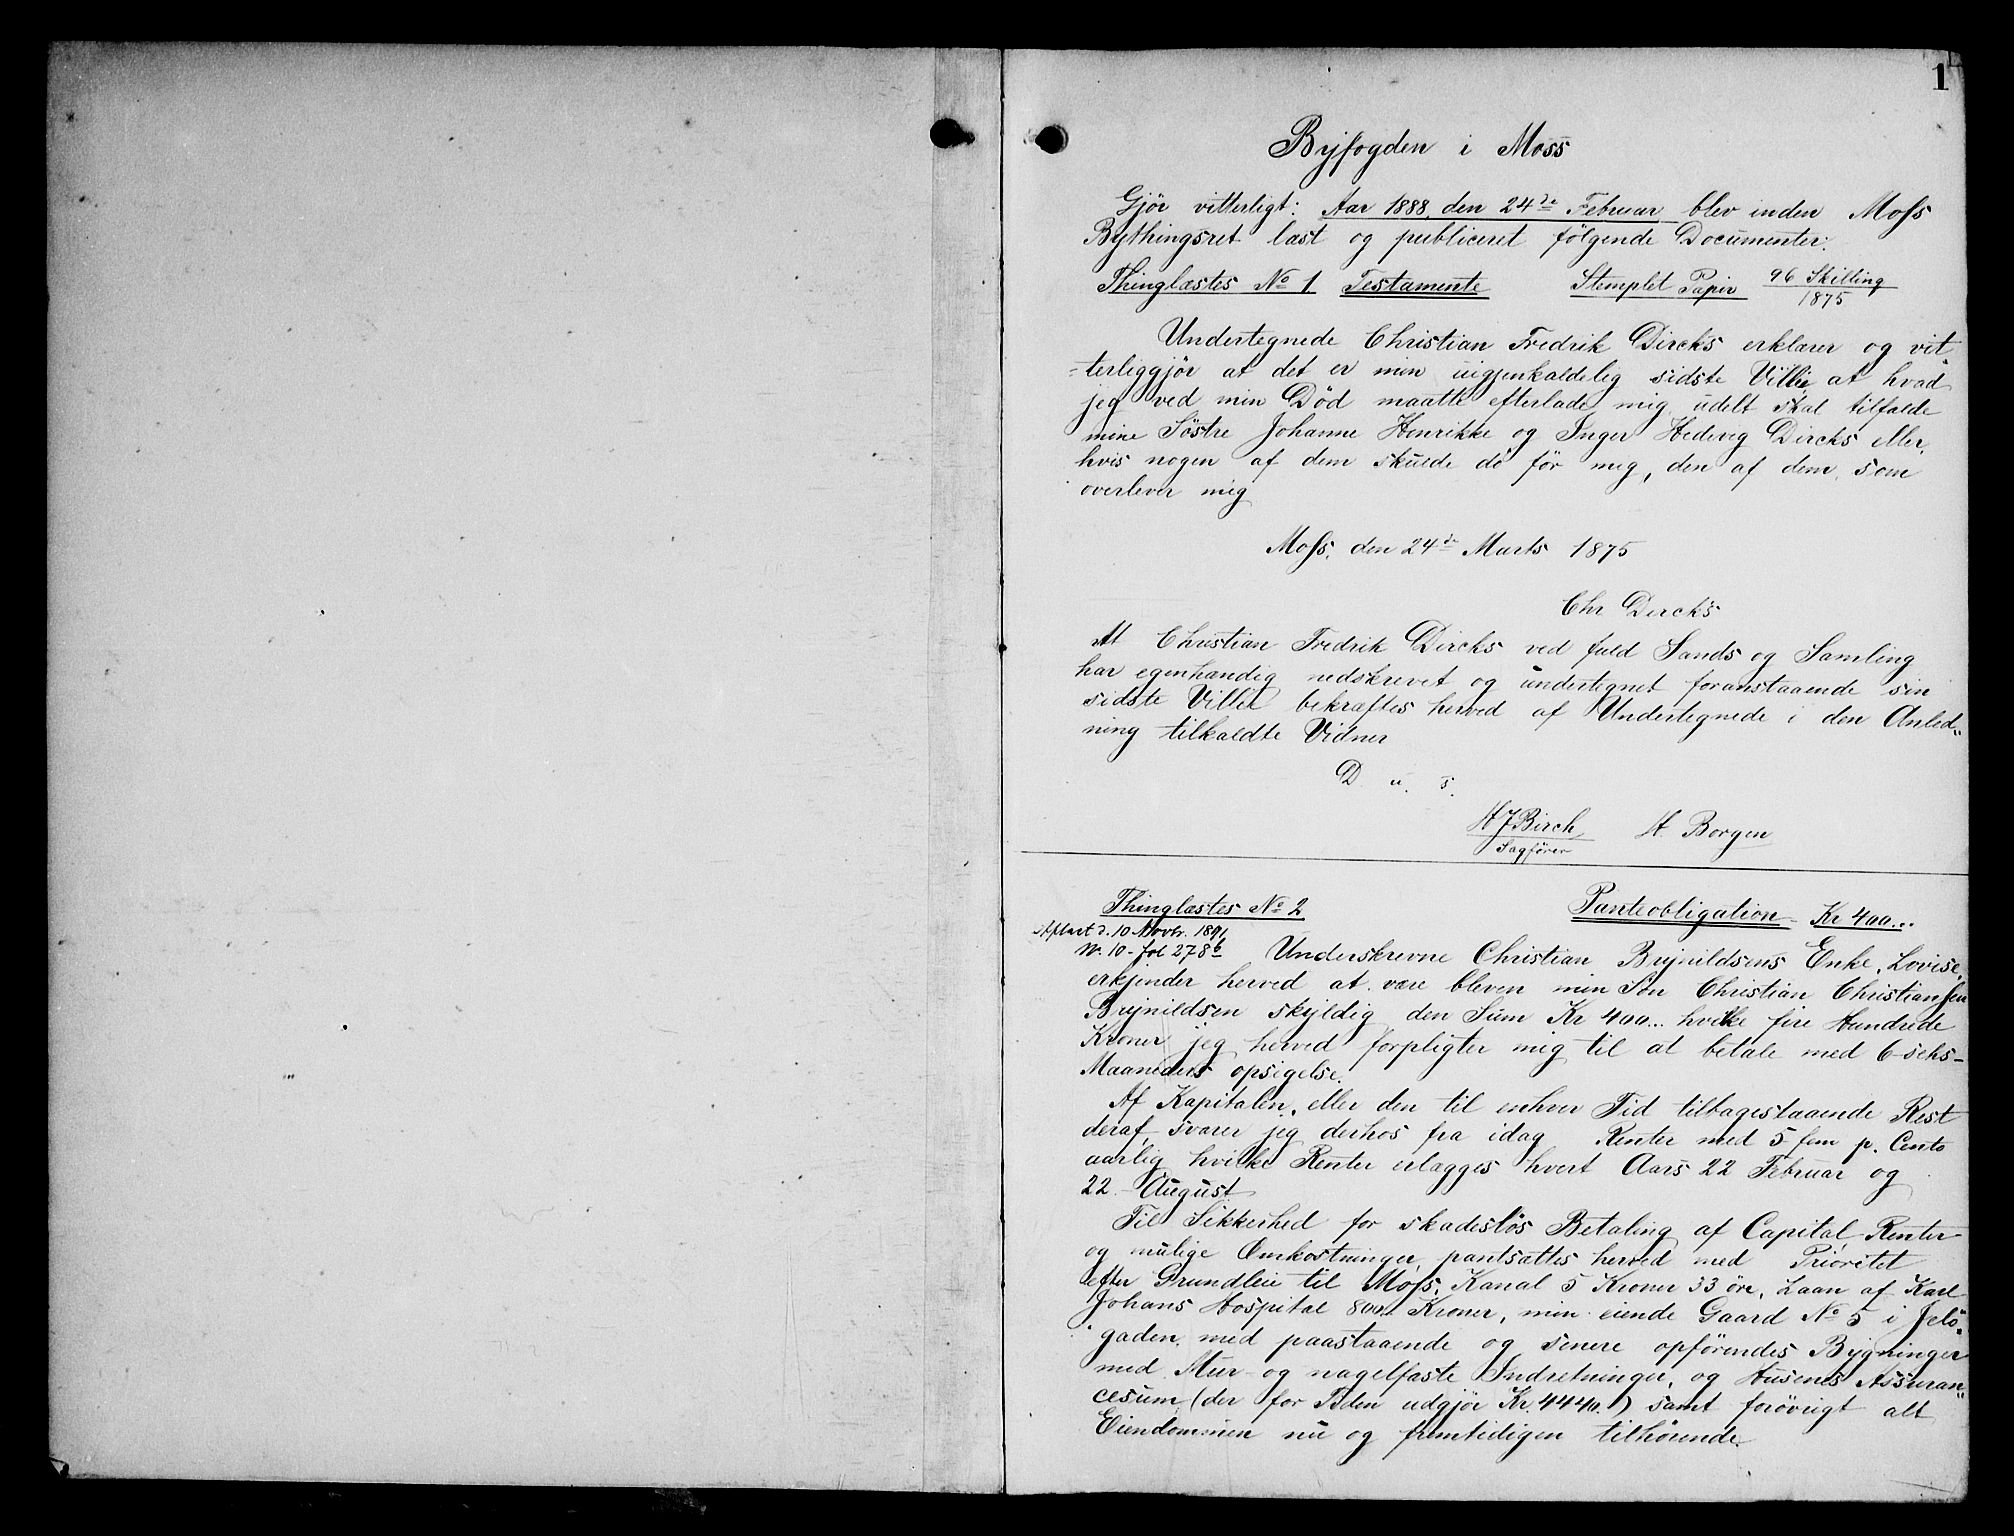 1
Byfogden i Moss
Gjør vitterligt: Aar 1888 den 24de Februar blev inden Moss
Bythingsret læst og publiceret følgende Documenter:
Thinglæstes No 1 Testamente Stemplet Papir 96 Skilling
1875
Undertegnede Christian Fredrik Dircks erklærer og vit
-terliggjør at det er min uigjenkaldelig sidste Villie at hvad
jeg ved min Død maatte efterlade mig udelt skal tilfalde
mine Søstre Johanne Henrikke og Inger Hedevig Dircks eller,
hvis nogen af dem skulde dø før mig, den af dem, som
overlever mig
Moss, den 24de Marts 1875
Chr Dircks
At Christian Fredrik Dircks ved fuld Sands og Samling
har egenhændig nedskrevet og undertegnet foranstaaende sin
sidste Villie bekræftes herved af Undertegnede i den Anled„
ning tilkaldte Vidner
D. u. s.
HJBirch H. Borgen
Sagfører
Thinglæstes No 2 Panteobligation Kr 400...
Aflæst d. 10 Novbr. 1891
No. 10 - fol 278b Underskrevne Christian Brynildsens Enke, Lovise,
erkjender herved at være bleven min Søn Christian Christiansen
Brynildsen skyldig den Sum Kr 400... hvilke fire Hundrede
Kroner jeg herved forpligter mig til at betale med 6-seks-
Maaneders opsigelse.
Af Kapitalen, eller den til enhver Tid tilbagestaaende Rest
deraf, svarer jeg derhos fra idag Renter med 5 fem p. Cento
aarlig hvilke Renter erlægges hvert Aars 22 Februar og
22. August
Til Sikkerhed for skadesløs Betaling af Capital, Renter
og mulige Omkostninger, pantsættes herved med Prioritet
efter Grundleie til Moss. Kanal 5 Kroner 33 øre, Laan af Karl
Johans Hospital 800.. Kroner, min eiende Gaard No 5 i Jelø„
gaden, med paastaaende og senere opførendes Bygninger
med Mur- og nagelfaste Indretninger, og Husenes Assuran„
cesum (der for Tiden udgjør Kr. 4440.) samt forøvrigt alt
Eiendommen nu og fremtidigen tilhørende.